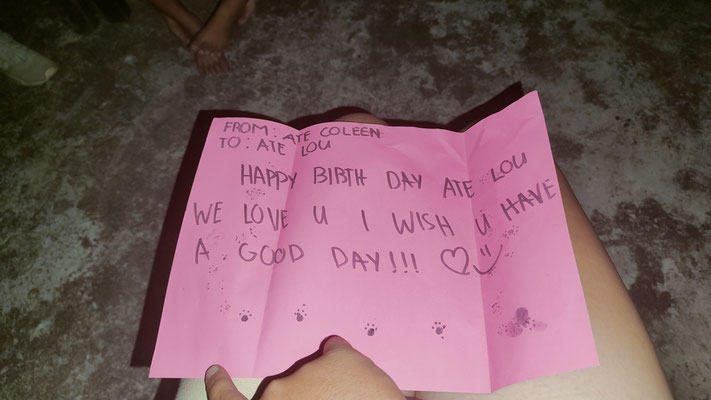 FROM: ATE COLEEN
TO: ATE LOU
HAPPY BIRTH DAY ATE LOU
WE LOVE U I WISH U HAVE
A GOOD DAY!!!